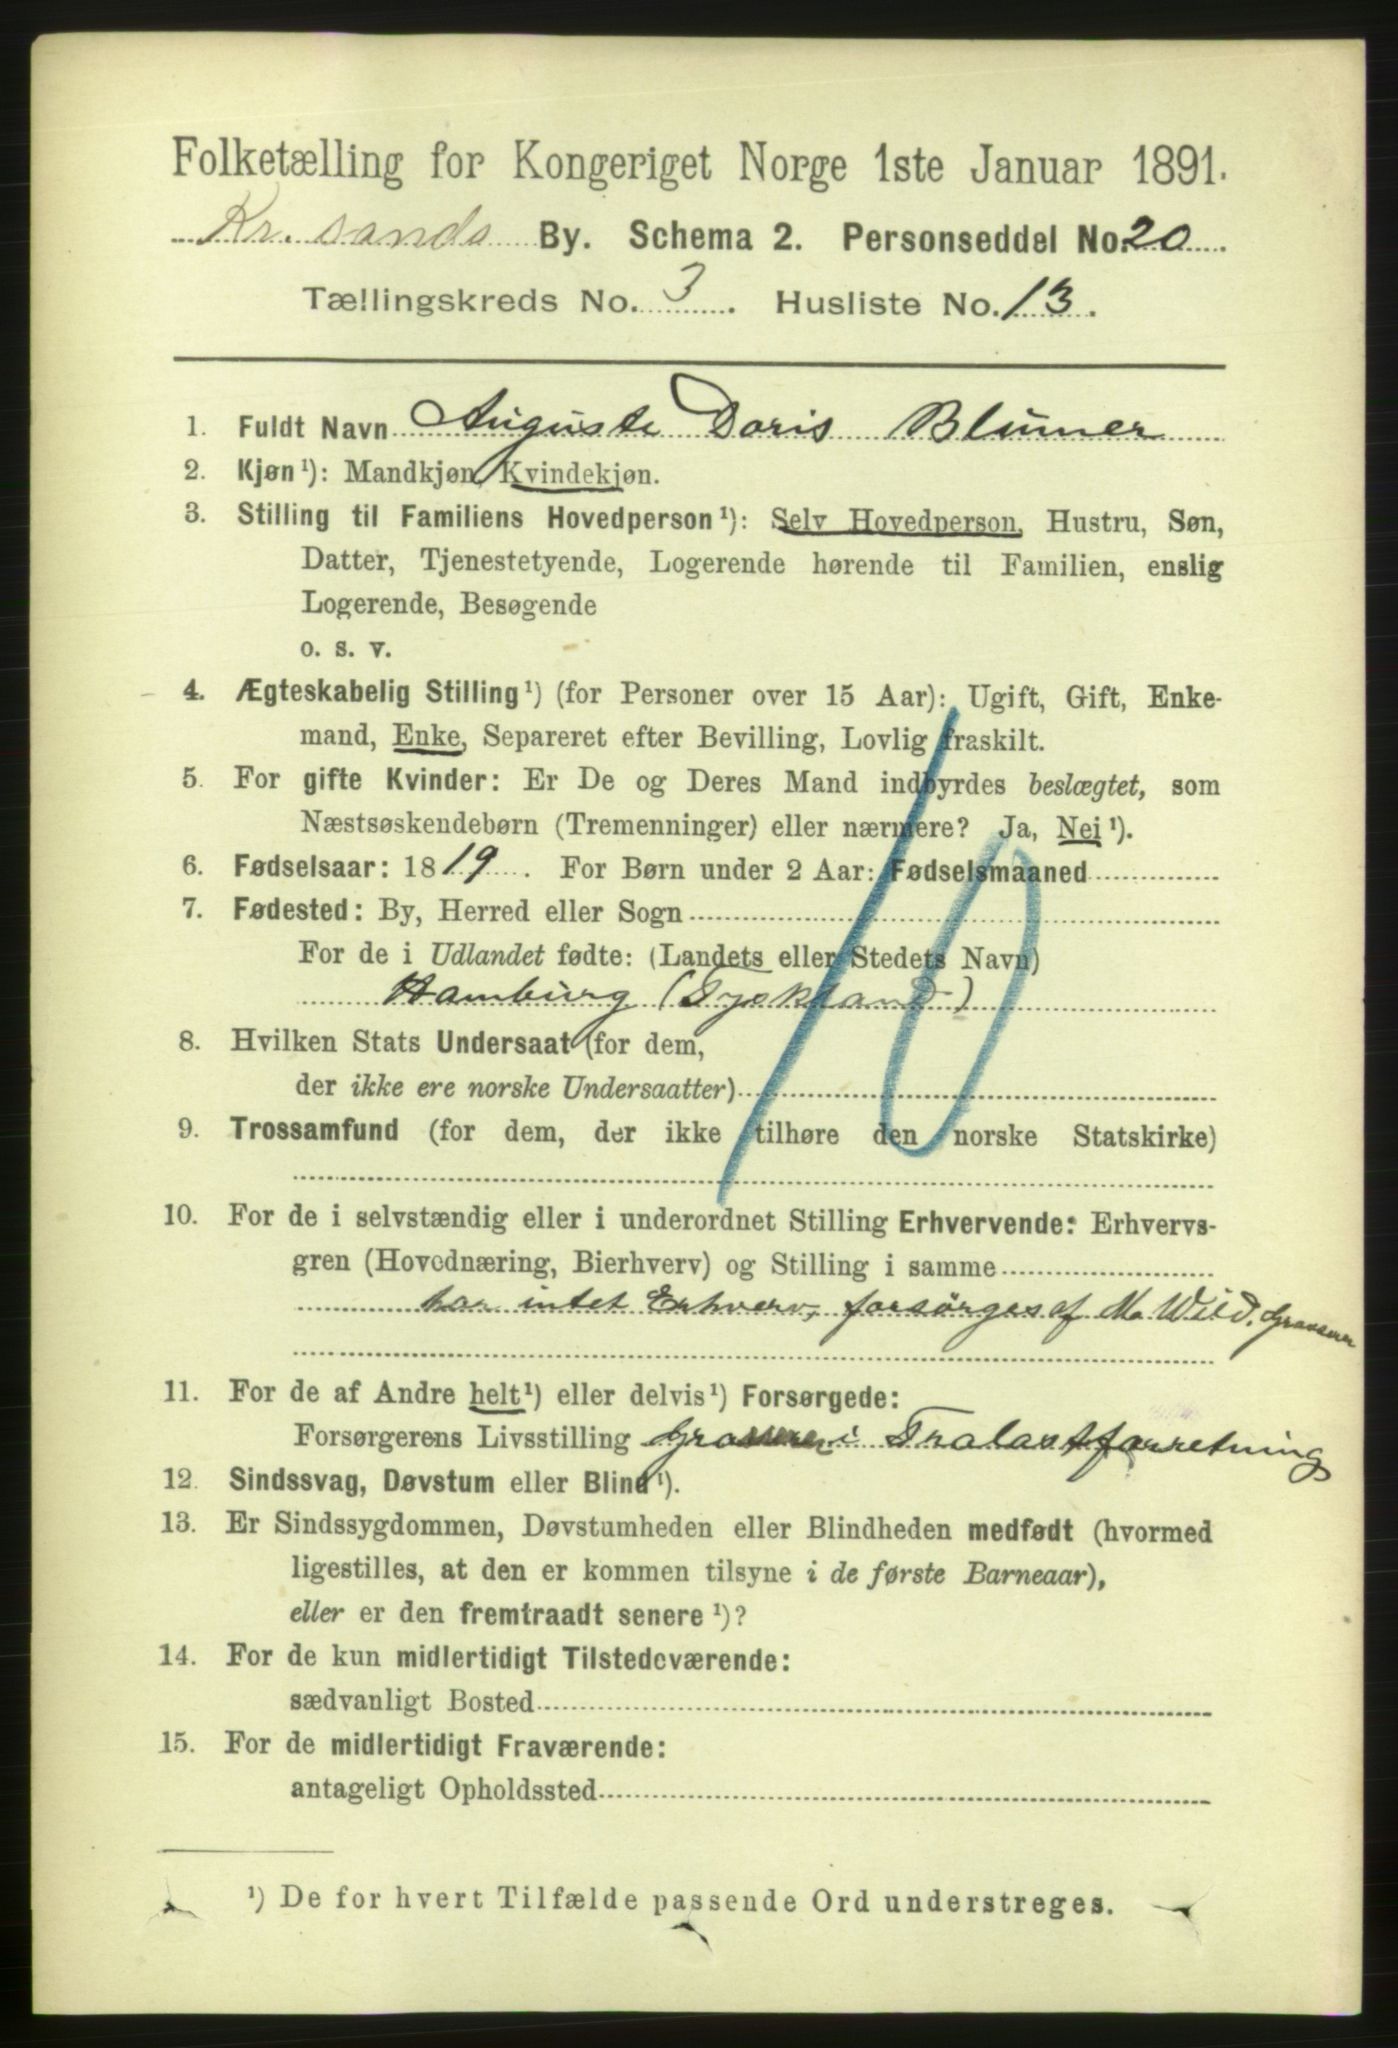 Folketælling for Kongeriget Norge 1ste Januar 1891.
Kr. sands By. Schema 2. Personseddel No. 20
Tællingskreds No. 3. Husliste No. 13.
1. Fuldt Navn Auguste Doris Blümer
2. Kjøn¹): Mandkjøn, Kvindekjøn.
3. Stilling til Familiens Hovedperson¹): Selv Hovedperson, Hustru, Søn,
Datter, Tjenestetyende, Logerende hørende til Familien, enslig
Logerende, Besøgende
o. s. v.
4. Ægteskabelig Stilling¹) (for Personer over 15 Aar): Ugift, Gift, Enke-
mand, Enke, Separeret efter Bevilling, Lovlig fraskilt.
5. For gifte Kvinder: Er De og Deres Mand indbyrdes beslægtet, som
Næstsøskendebørn (Tremenninger) eller nærmere? Ja, Nei¹).
6. Fødselsaar: 1819. For Børn under 2 Aar: Fødselsmaaned
7. Fødested: By, Herred eller Sogn
For de i Udlandet fødte: (Landets eller Stedets Navn)
Hamburg (Tyskland)
10
8. Hvilken Stats Undersaat (for dem,
der ikke ere norske Undersaatter)
9. Trossamfund (for dem, der ikke tilhøre den norske Statskirke)
10. For de i selvstændig eller i underordnet Stilling Erhvervende: Erhvervs-
gren (Hovednæring, Bierhverv) og Stilling i samme
har intet Erhverv, forsørges af M. Wild, Grosserer
11. For de af Andre helt¹) eller delvis¹) Forsørgede:
Forsørgerens Livsstilling Grosserer i Tralastforretning
12. Sindssvag, Døvstum eller Blind¹).
13. Er Sindssygdommen, Døvstumheden eller Blindheden medfødt (hvormed
ligestilles, at den er kommen tilsyne i de første Barneaar),
eller er den fremtraadt senere¹)?
14. For de kun midlertidigt Tilstedeværende:
sædvanligt Bosted
15. For de midlertidigt Fraværende:
antageligt Opholdssted
¹) De for hvert Tilfælde passende Ord understreges.